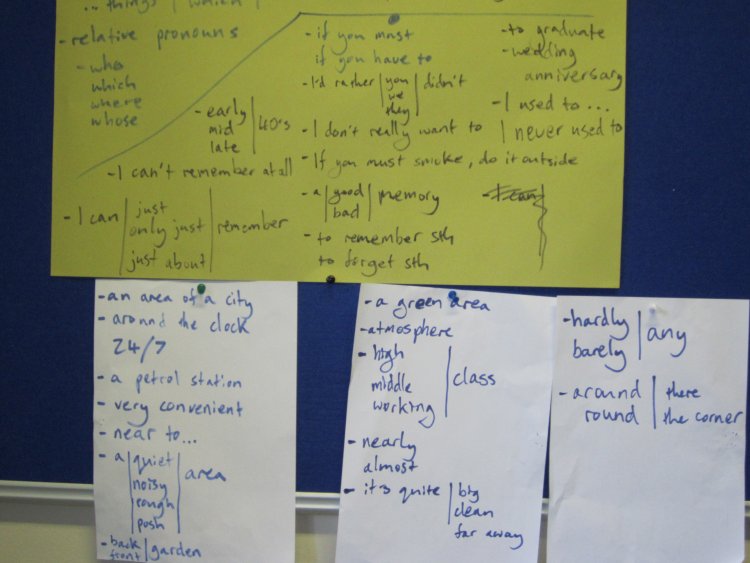 ... things | which |
- relative pronouns
- who
which
where
whose
- early
mid | 40's
late
- I can't remember at all
- I can | just
only just | remember
just about
- if you must
if you have to
- I'd rather | you | didn't
we
they
- I don't really want to
- If you must smoke, do it outside
- a | good | memory
bad
- to remember sth
to forget sth
- to graduate
- wedding
anniversary
- I used to ...
I never used to
- an area of a city
- around the clock
24/7
- a petrol station
- very convenient
- near to...
- a | quiet | area
noisy
rough
posh
- back | garden
front
- a green area
- atmosphere
- high
middle | class
working
- nearly
almost
- it's quite | big
clean
far away
- hardly | any
barely
- around | there
round | the corner